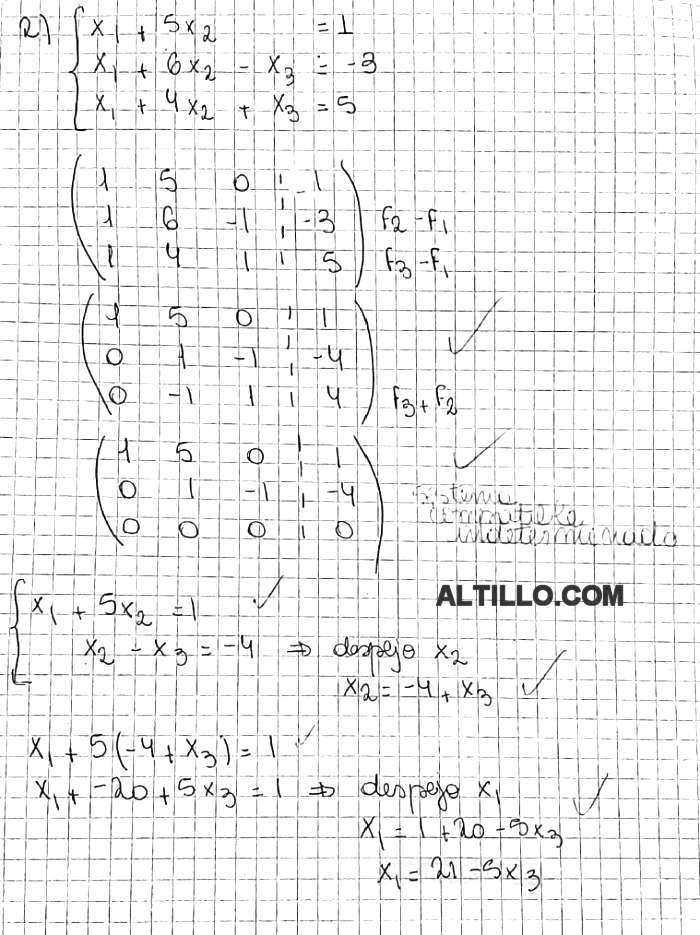 2) { x₁ + 5x₂ = 1
x₁ + 6x₂ - x₃ = -3
x₁ + 4x₂ + x₃ = 5
1 5 0 | 1
1 6 -1 | -3 F2 - F1
1 4 1 | 5 F3 - F1
1 5 0 | 1
0 1 -1 | -4
0 -1 1 | 4 F3 + F2
1 5 0 | 1
0 1 -1 | -4
0 0 0 | 0
sistema
compatible
indeterminado
ALTILLO.COM
{ x₁ + 5x₂ = 1
x₂ - x₃ = -4 ⇒ despejo x₂
x₂ = -4 + x₃
x₁ + 5(-4 + x₃) = 1
x₁ + -20 + 5x₃ = 1 ⇒ despejo x₁
x₁ = 1 + 20 - 5x₃
x₁ = 21 - 5x₃